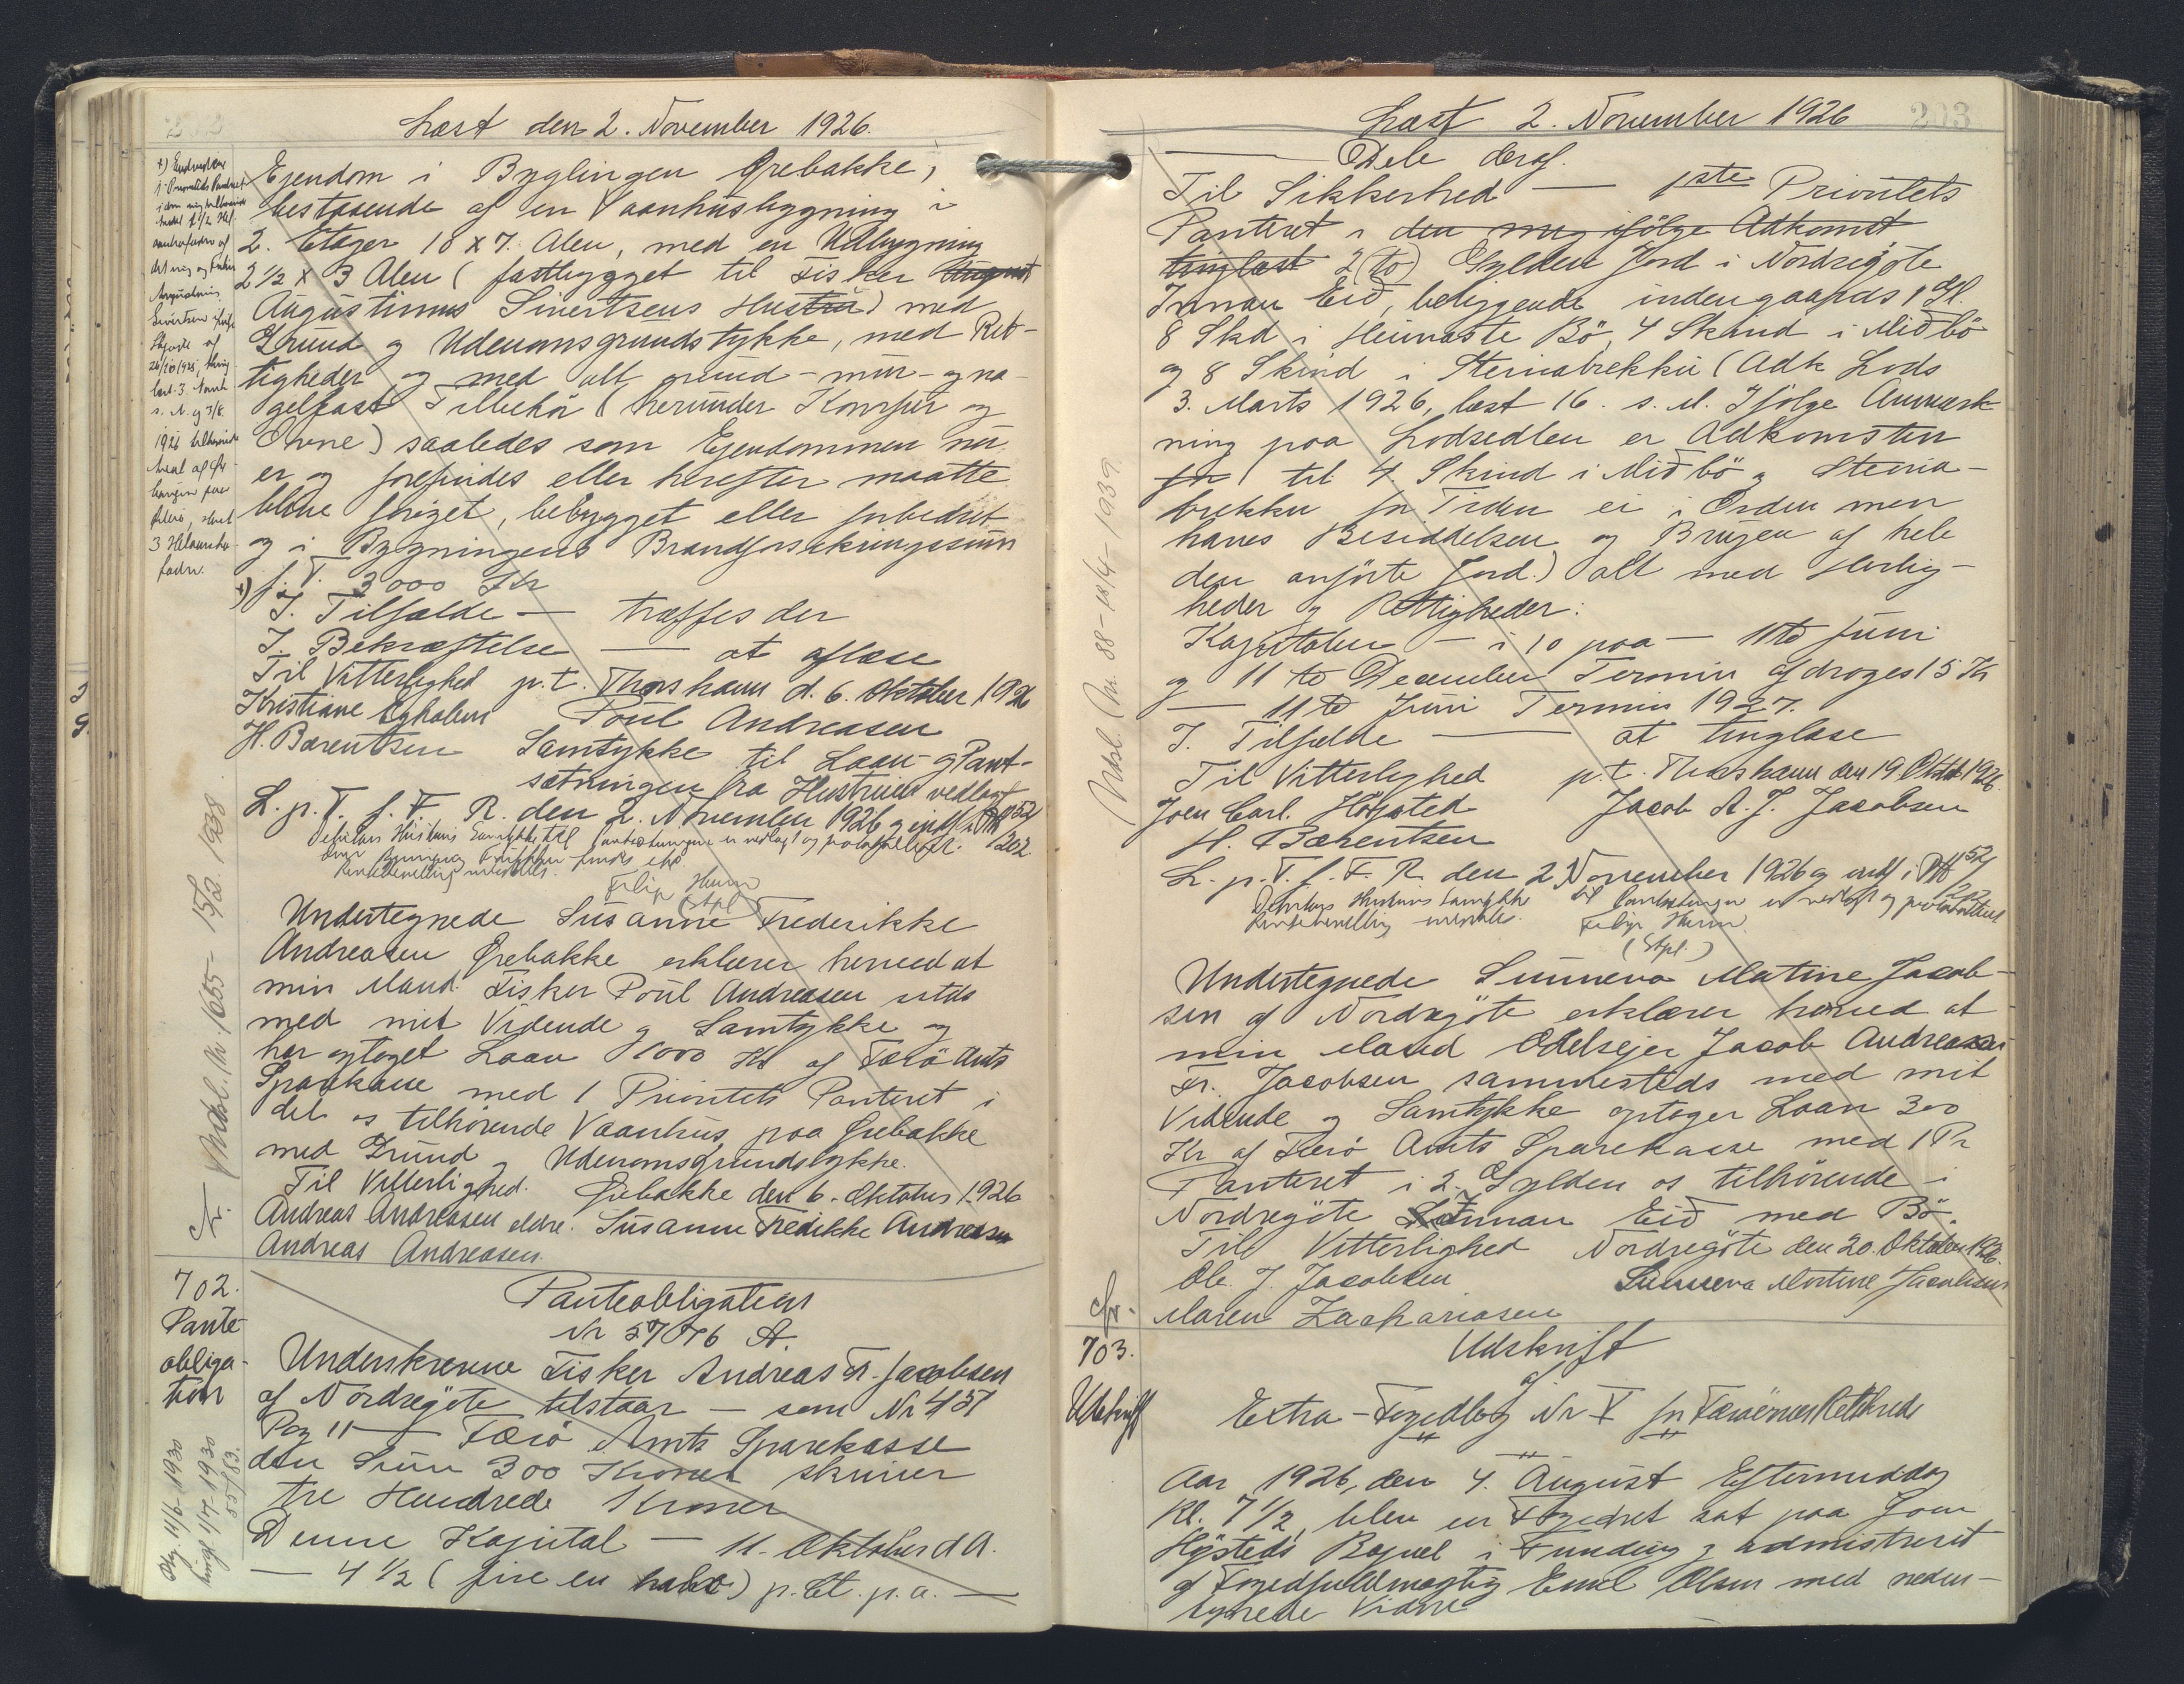 202
Læst den 2. November 1926.
Ejendom i Byglingen Ørebakke,
bestaaende af en Vaanhusbygning i
2. Etager 18 x 7 Alen, med en Udbygning
2 1/2 x 3 Alen (fastbygget til Fisker August
Augustinus Sivertsens Hustru) med
Grund og Udenomsgrundstykke, med Ret-
tigheder og med alt grund-mur- og na-
gelfast Tilbehör (herunder Komfur og
Ovne) saaledes som Ejendommen nu
er og forefindes eller herefter maatte
blive foröget, bebygget eller forbedret
og i Bygningens Brandforsikringssum
p. T. 3000 Kr
I. Tilfælde — træffes der
I. Bekræftelse — at aflæse
Til Vitterlighed p.t. Thorshavn d. 6. Oktober 1926
Kristiane Egholm Poul Andreasen
H. Bærentsen Samtykke til Laan- og Pant-
sætningen fra Hustruen vedlagt
L. p. T. f. F. R. den 2. November 1926 og indf. i
Filip
(Stpl)
Undertegnede Susanne Frederikke
Andreasen Ørebakke erklærer herved at
min Mand Fisker Poul Andreasen sstds
med mit Vidende og Samtykke og
har optaget Laan 1000 Kr af Færö Amts
Sparekasse med 1 Prioritets Panteret i
det os tilhörende Vaanhus paa Ørebakke
med Grund og Udenomsgrundstykke.
Til Vitterlighed. Ørebakke den 6. Oktober 1926
Andreas Andreasen eldre. Susanne Fredikke Andreasen
Andreas Andreasen.
Udsl. Nr. 1655 - 15/12 1938.
702.
Pante
obliga-
tion
Panteobligation
Nr 57076 A.
Underskrevne Fisker Andreas Fr. Jacobsen
af Nordregöte tilstaar — som Nr 451
Pag 11 — Færö Amts Sparekasse
den Sum 300 Kroner skriver
tre Hundrede Kroner
Denne Kapital — 11. Oktober d A.
— 4 1/2 (fire en halv) p. Ct. p.a. —
11/6-1930
tingl 1/7-1930
55/83.
203
Læst 2. November 1926
— Dele deraf.
Til Sikkerhed — 1ste Prioritets
Panteret i den mig ifölge Adkomst
tinglæst 2 (to) Gylden Jord i Nordregöte
Innan Eið, beliggende indengaards 1 Gl.
8 Skd i Heimaste Bö, 4 Skind i Miðbö
og 8 Skind i Steinabrekku (Adk Lods
3. Marts 1926, læst 16. s. M. Ifölge Anmærk-
ning paa Lodsedlen er Adkomsten
for til 4 Skind i Miðbö og Steina-
brekku for Tiden ei i Orden men
haves Besiddelsen og Brugen af hele
den anförte Jord.) alt med Herlig-
heder og Rettigheder:
Kapitalen — i 10 paa — 11te Juni
og 11te December Termin afdrages 15 Kr
— 11te Juni Termin 1927.
I. Tilfælde — at tinglæse
Til Vitterlighed p.t. Thorshavn den 19. Oktob 1926.
Joen Carl. Högsted Jacob A. F. Jacobsen
H. Bærentsen
L. p. T. f. F. R. den 2 November 1926 og indf i
Filip
(Stpl.)
Undertegnede Sunneva Matine Jacob-
sen af Nordregöte erklærer herved at
min Mand Odelsejer Jacob Andreas
Fr. Jacobsen sammesteds med mit
Vidende og Samtykke optager Laan 300
Kr af Færö Amts Sparekasse med 1 Pr
Panteret i 2. Gylden os tilhörende i
Nordregöte Innan Eið med Bö.
Til Vitterlighed Nordregöte den 20. Oktober 1926.
Ole. J. Jacobsen Sunneva Martine Jacobsen
Maren Zachariasen
Udsl. Nr. 88 - 18/4-1939
703.
Udskrift
Udskrift
af
Extra-Fogedbog Nr V for Færöernes Retskreds
Aar 1926, den 4. August Eftermiddag
Kl. 7 1/2, blev en Fogedret sat paa Joen
Högsteds Bopæl i Funding og administreret
af Fogedfuldmægtig Emil Olsen med neden-
tegnede Vidne